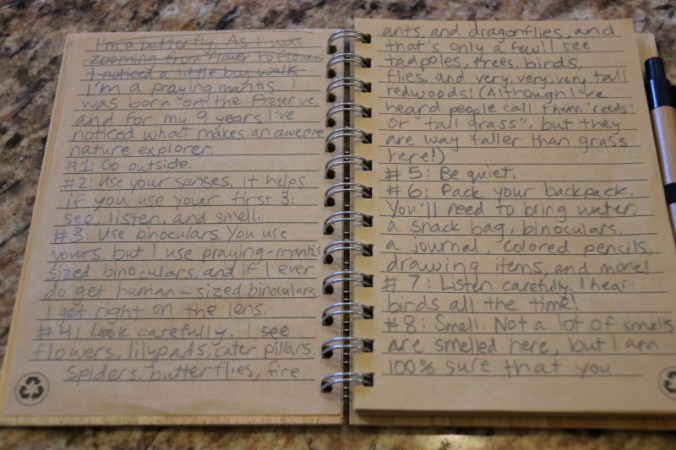 I'm a butterfly. As I was
zooming from flower to flower,
I noticed a little boy walk
I'm a praying mantis. I
was born on the Preserve,
and for my 9 years I've
noticed what makes an awesome
nature explorer.
#1: Go outside.
#2: Use your senses. It helps
if you use your first 3:
see, listen, and smell.
#3: Use binoculars. You use
yours, but I use praying-mantis
sized binoculars, and if I ever
do get human-sized binoculars
I got right on the lens.
#4: Look carefully. I see
flowers, lilypads, cater pillars,
spiders, butterflies, fire
ants, and dragonflies, and
that's only a few! I see
tadpoles, trees, birds,
flies, and very, very, very tall
redwoods! (Although I've
heard people call them "reeds"
or "tall grass", but they
are way taller than grass
here!)
#5: Be quiet.
#6: Pack your backpack.
You'll need to bring water,
a snack bag, binoculars,
a journal, colored pencils,
drawing items, and more!
#7: Listen carefully. I hear
birds all the time!
#8: Smell. Not a lot of smells
are smelled here, but I am
100% sure that you